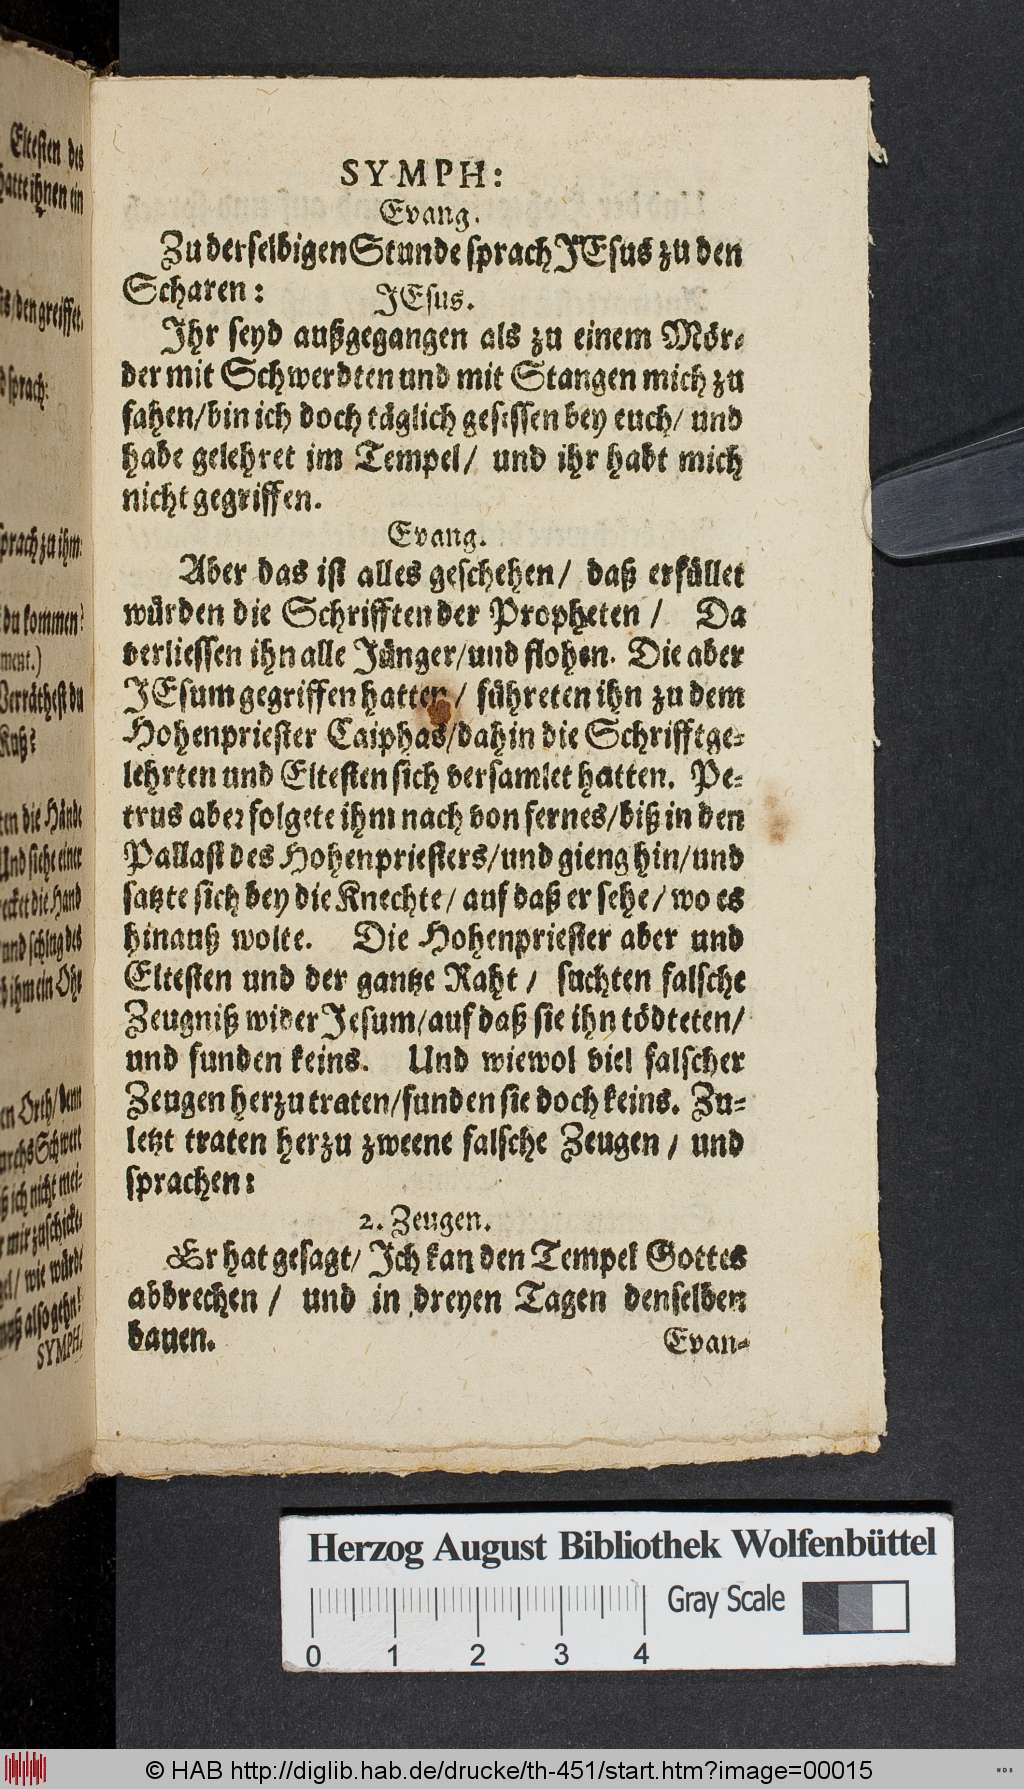 Eltesten des
hatte ihnen ein
den greiffet.
sprach:
sprach zu ihm
du kommen?
ment.)
Verräthest du
Kuß?
die Hände
Und siehe einer
recket die Hand
und schlug des
ihm ein Ohr
Orth/denn
Schwert
ich nicht mei-
mir zuschickte,
wie würde
muß also gehn!
SYMPH:
SYMPH:
Evang.
Zu derselbigen Stunde sprach JEsus zu den
Scharen:
JEsus.
Ihr seyd außgegangen als zu einem Mör-
der mit Schwerdten und mit Stangen mich zu
fahen/bin ich doch täglich gesessen bey euch/ und
habe gelehret im Tempel/ und ihr habt mich
nicht gegriffen.
Evang.
Aber das ist alles geschehen/ daß erfüllet
würden die Schrifften der Propheten / Da
verliessen ihn alle Jünger/und flohen. Die aber
JEsum gegriffen hatten / führeten ihn zu dem
Hohenpriester Caiphas/dahin die Schrifftge-
lehrten und Eltesten sich versamlet hatten. Pe-
trus aber folgete ihm nach von fernes/biß in den
Pallast des Hohenpriesters/und gieng hin/und
satzte sich bey die Knechte/ auf daß er sehe/ wo es
hinauß wolte. Die Hohenpriester aber und
Eltesten und der gantze Raht / suchten falsche
Zeugniß wider Jesum/auf daß sie ihn tödteten/
und funden keins. Und wiewol viel falscher
Zeugen herzu traten/funden sie doch keins. Zu-
letzt traten herzu zweene falsche Zeugen / und
sprachen:
2. Zeugen.
Er hat gesagt/ Ich kan den Tempel Gottes
abbrechen / und in dreyen Tagen denselben
bauen.
Evan-
Herzog August Bibliothek Wolfenbüttel
Gray Scale
0 1 2 3 4
© HAB http://diglib.hab.de/drucke/th-451/start.htm?image=00015